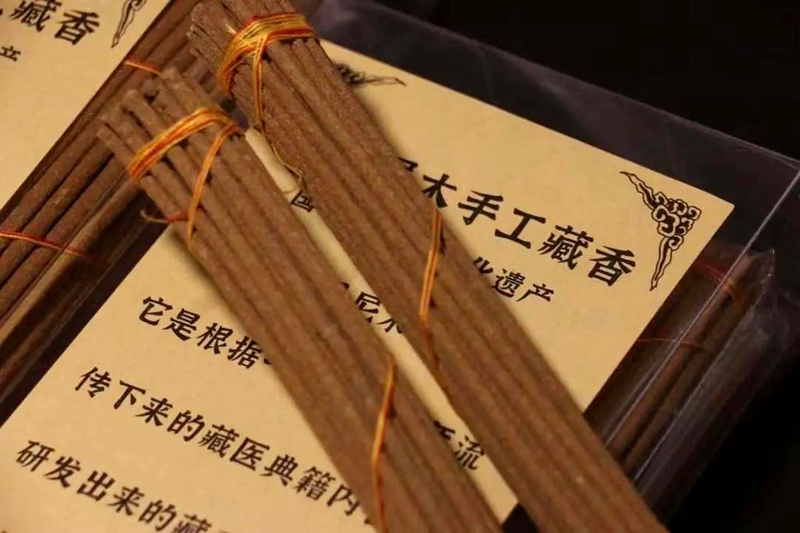 藏香
产
木手工藏香
国
遗产
尼木
它是根据
流
传下来的藏医典籍内
研发出来的藏